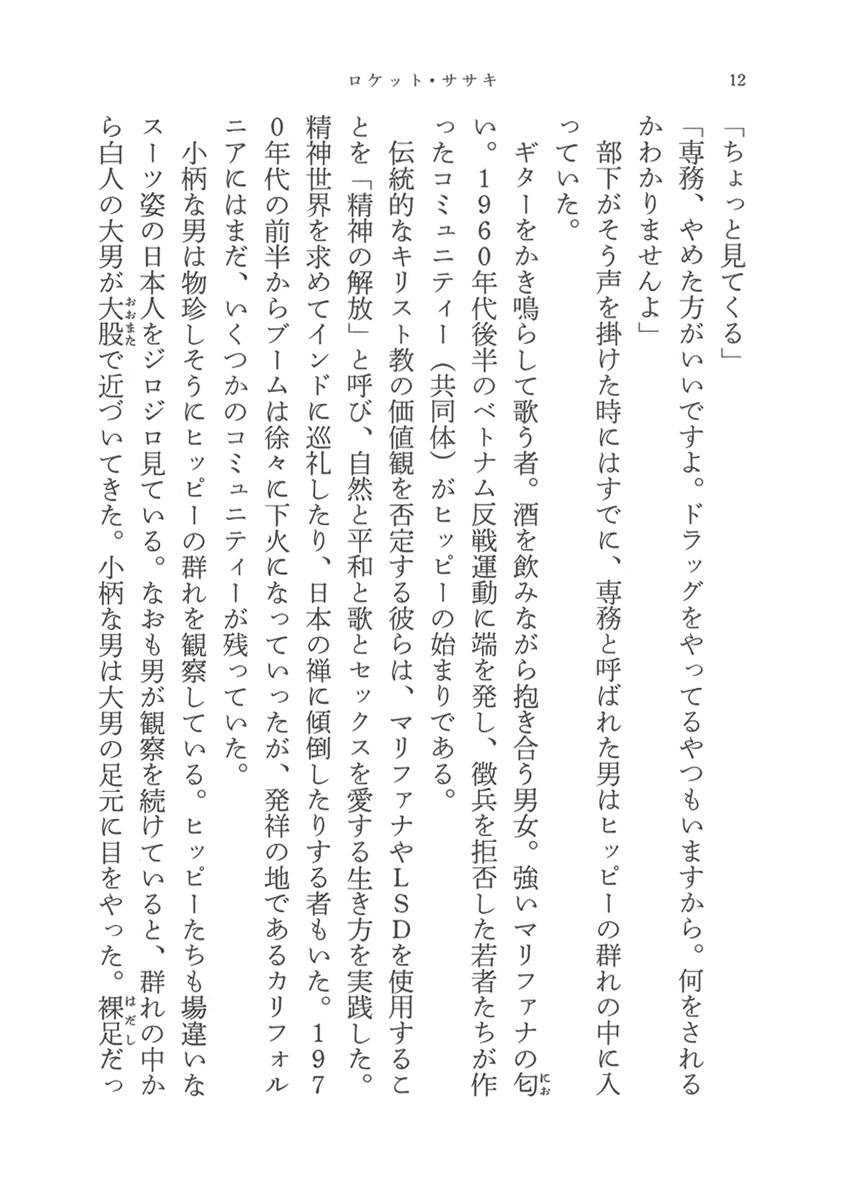 ロケット・ササキ
12
「ちょっと見てくる」
「専務、やめた方がいいですよ。ドラッグをやってるやつもいますから。何をされる
かわかりませんよ」
部下がそう声を掛けた時にはすでに、専務と呼ばれた男はヒッピーの群れの中に入
っていた。
ギターをかき鳴らして歌う者。酒を飲みながら抱き合う男女。強いマリファナの匂
い。1960年代後半のベトナム反戦運動に端を発し、徴兵を拒否した若者たちが作
ったコミュニティー（共同体）がヒッピーの始まりである。
伝統的なキリスト教の価値観を否定する彼らは、マリファナやLSDを使用するこ
とを「精神の解放」と呼び、自然と平和と歌とセックスを愛する生き方を実践した。
精神世界を求めてインドに巡礼したり、日本の禅に傾倒したりする者もいた。197
0年代の前半からブームは徐々に下火になっていったが、発祥の地であるカリフォル
ニアにはまだ、いくつかのコミュニティーが残っていた。
小柄な男は物珍しそうにヒッピーの群れを観察している。ヒッピーたちも場違いな
スーツ姿の日本人をジロジロ見ている。なおも男が観察を続けていると、群れの中か
ら白人の大男が大股で近づいてきた。小柄な男は大男の足元に目をやった。裸足だっ
にお
おおまた
はだし